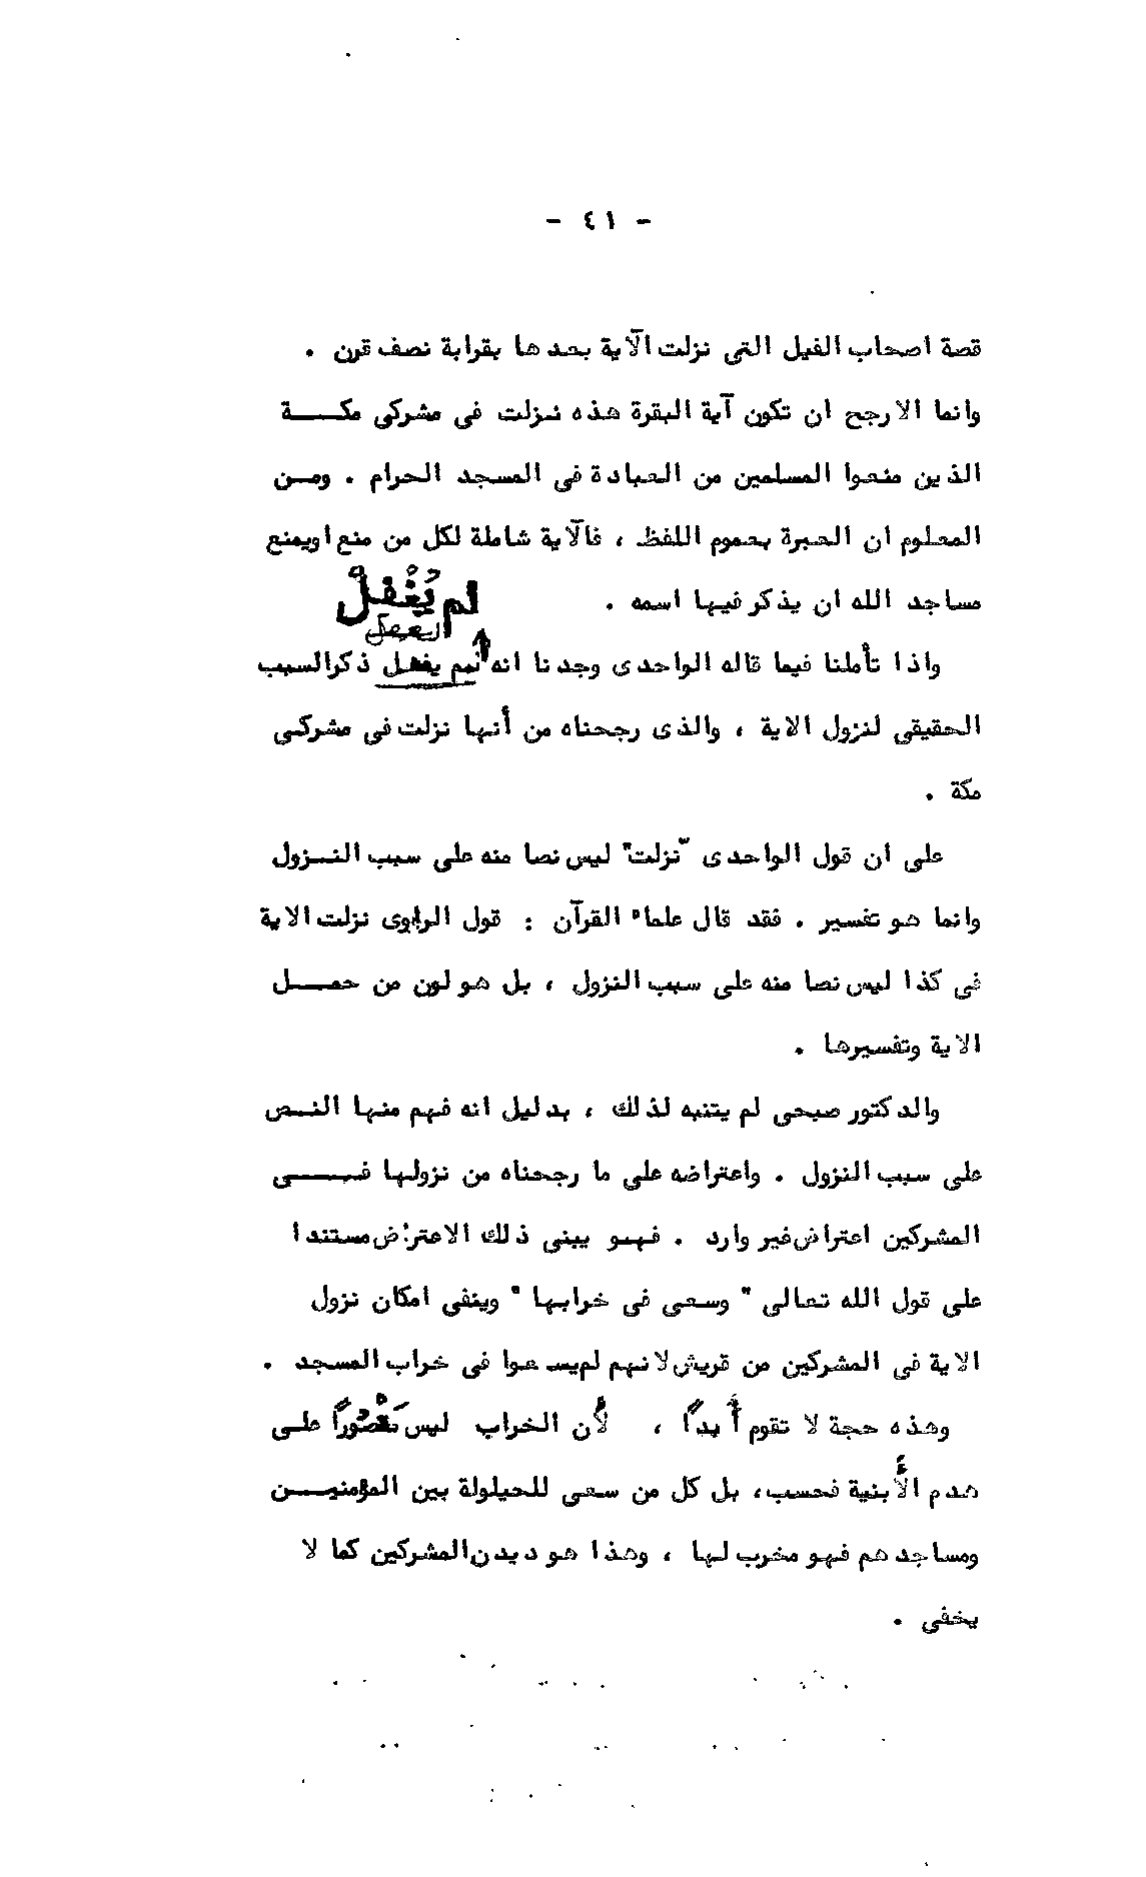 - ٤١ -
قصة اصحاب الفيل التى نزلت الآية بعدها بقرابة نصف قرن .
وانما الارجح ان تكون آية البقرة هذه نزلت فى مشركى مكــــة
الذين منعوا المسلمين من العبادة فى المسجد الحرام . ومـن
المعلوم ان العبرة بعموم اللفظ ، فالآية شاملة لكل من منع اويمنع
مساجد الله ان يذكر فيها اسمه .
لم يُغْفِلْ
واذا تأملنا فيما قاله الواحدى وجدنا انه يغفـل ذكر السبب
الحقيقى لنزول الاية ، والذى رجحناه من أنها نزلت فى مشركـى
مكة .
على ان قول الواحدى "نزلت" ليس نصا منه على سبب النـزول
وانما هو تفسير . فقد قال علماء القرآن : قول الراوى نزلت الاية
فى كذا ليس نصا منه على سبب النزول ، بل هو لون من حمــل
الاية وتفسيرها .
والدكتور صبحى لم يتنبه لذلك ، بدليل انه فهم منها النـص
على سبب النزول . واعتراضه على ما رجحناه من نزولها فــــى
المشركين اعتراض غير وارد . فهـو يبنى ذلك الاعتراض مستندا
على قول الله تعالى " وسعى فى خرابها " وينفى امكان نزول
الاية فى المشركين من قريش لانهم لم يسعوا فى خراب المسجد .
وهذه حجة لا تقوم أبداً ، لأن الخراب ليس مَقْصُوراً علـى
هدم الأبنية فحسب، بل كل من سعى للحيلولة بين المؤمنيــن
ومساجدهم فهو مخرب لها ، وهذا هو ديدن المشركين كما لا
يخفى .